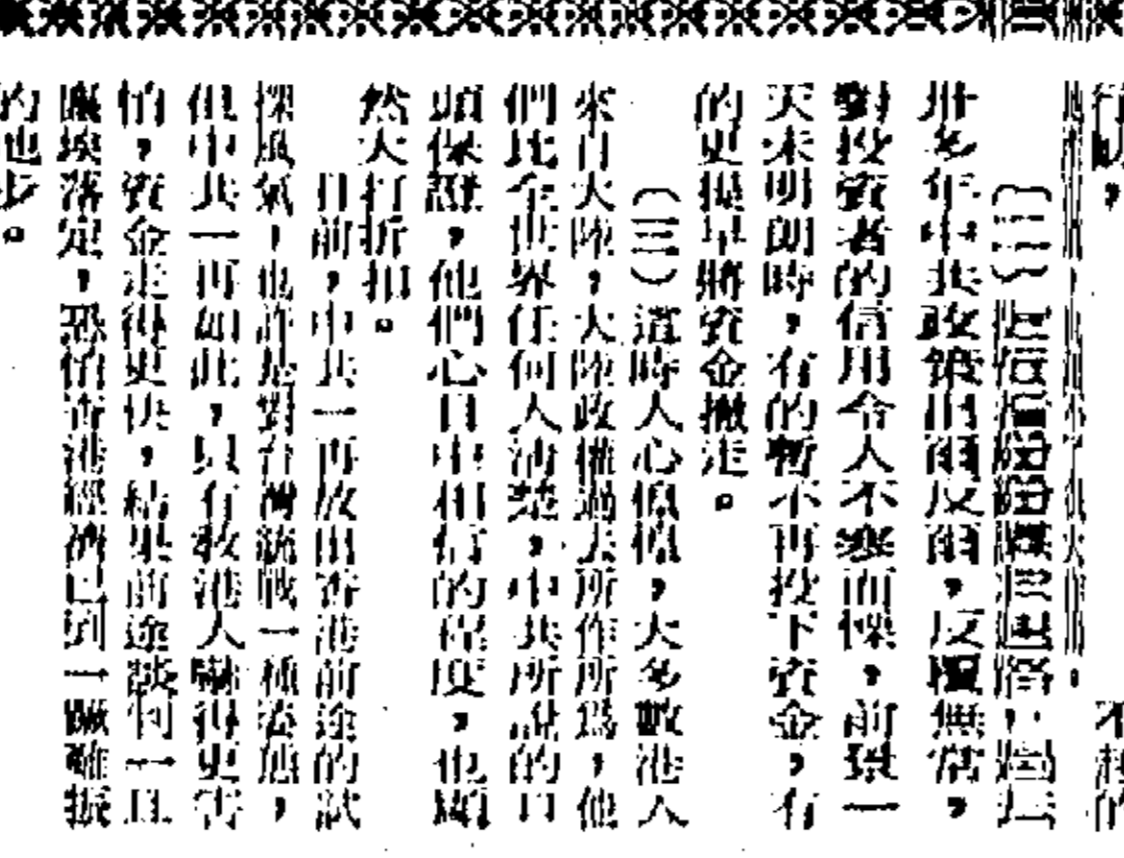 行動，
不起的
卅多年中共政策出爾反爾，反覆無常，
對投資者的信用令人不寒而慄，前景一
天未明朗時，有的暫不再投下資金，有
的更提早將資金撤走。
（三）這時人心惶惶，大多數港人
來自大陸，大陸政權過去所作所為，他
們比全世界任何人清楚，中共所說的口
頭保證，他們心目中相信的程度，也顯
然大打折扣。
目前，中共一再放出香港前途的試
探風氣，也許是對台灣統戰一種姿態，
但中共一再如此，只有教港人嚇得更害
怕，資金走得更快，結果前途談判一旦
塵埃落定，恐怕香港經濟已到一蹶難振
的地步。